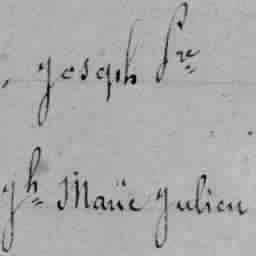 , Joseph Pre
gh Marie Julien